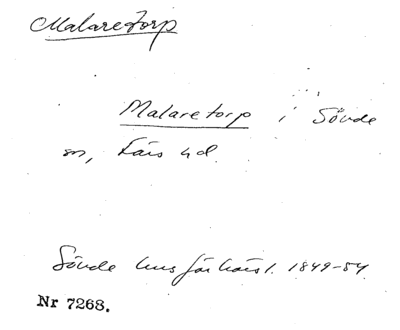 Malaretorp
Malaretorp i Sövde
sn, Färs hd.
Sövde husförhörsl. 1849-54
Nr 7268.